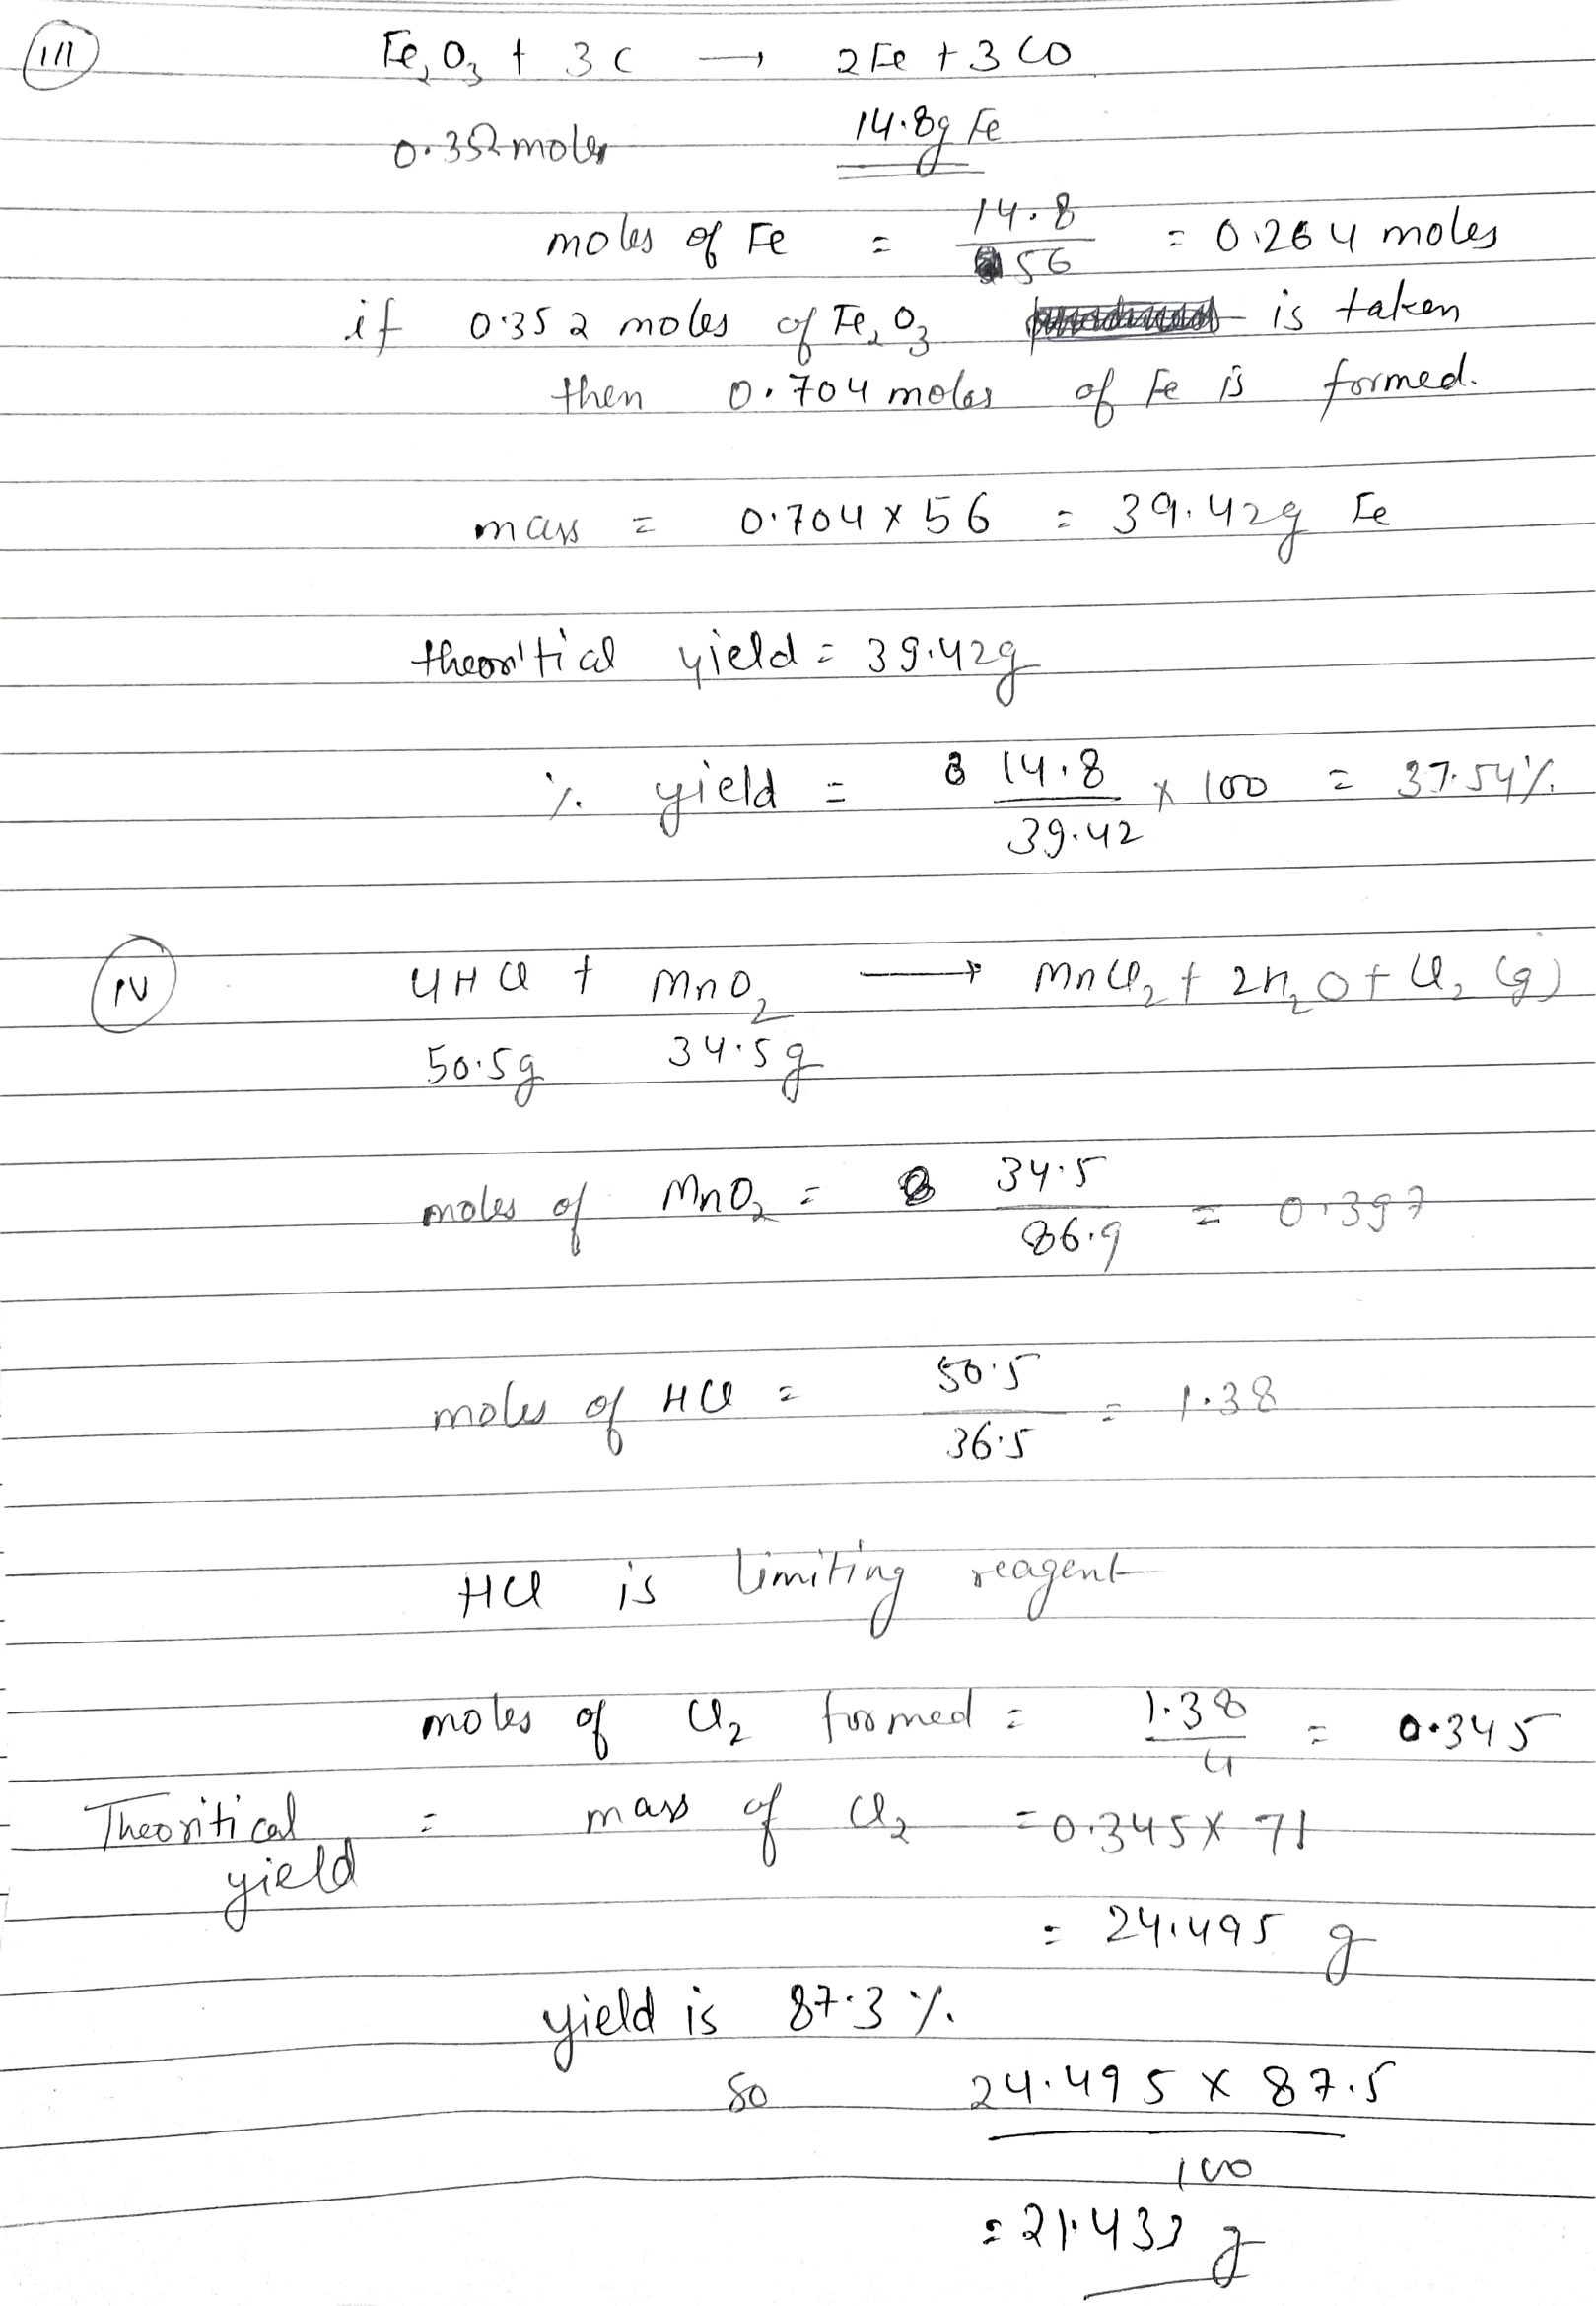 (III) Fe₂O₃ + 3C → 2Fe + 3CO
0.352 moles 14.8g Fe
moles of Fe = 14.8/56 = 0.264 moles
if 0.352 moles of Fe₂O₃ is taken
then 0.704 moles of Fe is formed.
mass = 0.704 × 56 = 39.42g Fe
theoritical yield = 39.42g
% yield = 14.8/39.42 × 100 = 37.54%
(IV) 4HCl + MnO₂ → MnCl₂ + 2H₂O + Cl₂ (g)
50.5g 34.5g
moles of MnO₂ = 34.5/86.9 = 0.397
moles of HCl = 50.5/36.5 = 1.38
HCl is limiting reagent
moles of Cl₂ formed = 1.38/4 = 0.345
Theoritical yield = mass of Cl₂ = 0.345 × 71
= 24.495 g
yield is 87.3 %.
so 24.495 × 87.5/100
= 21.433 g